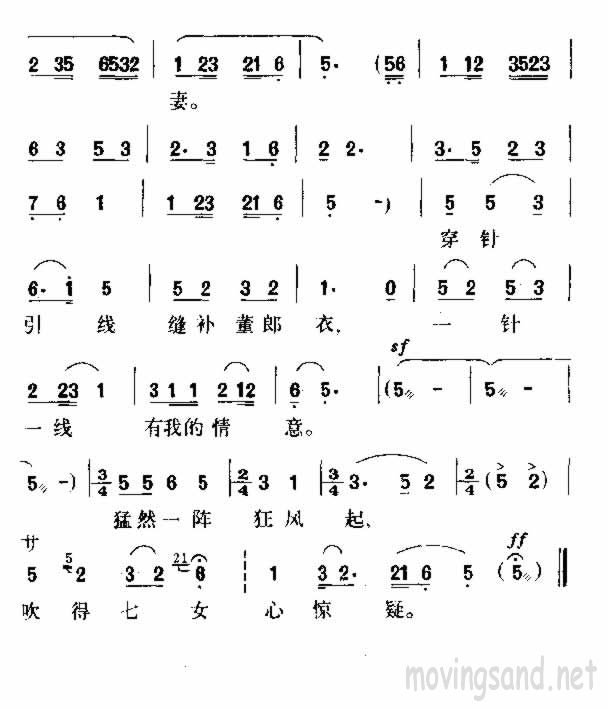 2 35 6532 | 1 23 21 6 | 5· (56 | 1 12 3523 |
妻。
6 3 5 3 | 2· 3 1 6 | 2 2· | 3· 5 2 3 |
7 6 1 | 1 23 21 6 | 5 -) | 5 5 3
穿针
6· 1 5 | 5 2 3 2 | 1· 0 | 5 2 5 3 |
引线缝补董郎衣, 一针
sf
2 23 1 | 3 1 1 2 12 | 6 5· | (5 - | 5 -
一线 有我的情 意。
5 -) | 3/4 5 5 6 5 | 2/4 3 1 | 3/4 3· 5 2 | 2/4 (5 2) |
猛然一阵 狂风 起,
サ ff
5 5 2 3 2 21 6 ¦ 1 3 2· 21 6 5 (5) ‖
吹得七女 心惊疑。
movingsand.net